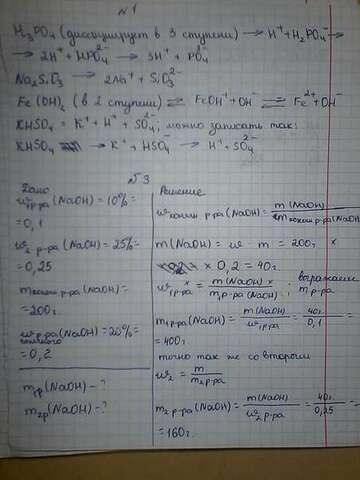 №1
H₃PO₄ (диссоциирует в 3 ступени) → H⁺+H₂PO₄⁻→
→ 2H⁺ + HPO₄²⁻ → 3H⁺ + PO₄³⁻
Na₂SiO₃ → 2Na⁺ + SiO₃²⁻
Fe(OH)₂ (в 2 ступени) ⇄ FeOH⁺+OH⁻ ⇄ Fe²⁺+OH⁻
KHSO₄ = K⁺ + H⁺ + SO₄²⁻, можно записать так:
KHSO₄ → K⁺ + HSO₄⁻ → H⁺+SO₄²⁻
№3
Дано
w₁р-ра (NaOH) = 10% =
= 0,1
w₂ р-ра (NaOH) = 25% =
= 0,25
m конечн р-ра (NaOH) =
= 200г.
w р-ра (NaOH) = 20% =
конечного
= 0,2
m₁р (NaOH) - ?
m₂р (NaOH) - ?
Решение
w конечн р-ра (NaOH) = m (NaOH) / m конечн р-ра (NaOH)
m (NaOH) = w · m = 200г. ×
× 0,2 = 40г.
w₁р-ра = m (NaOH) / m₁р-ра (NaOH) ; выражаем m₁р-ра
m₁р-ра (NaOH) = m (NaOH) / w₁р-ра = 40г / 0,1 =
= 400г
точно так же со вторым
w₂ = m / m₂р-ра
m₂ р-ра (NaOH) = m (NaOH) / w₂ р-ра = 40г / 0,25 =
= 160г.